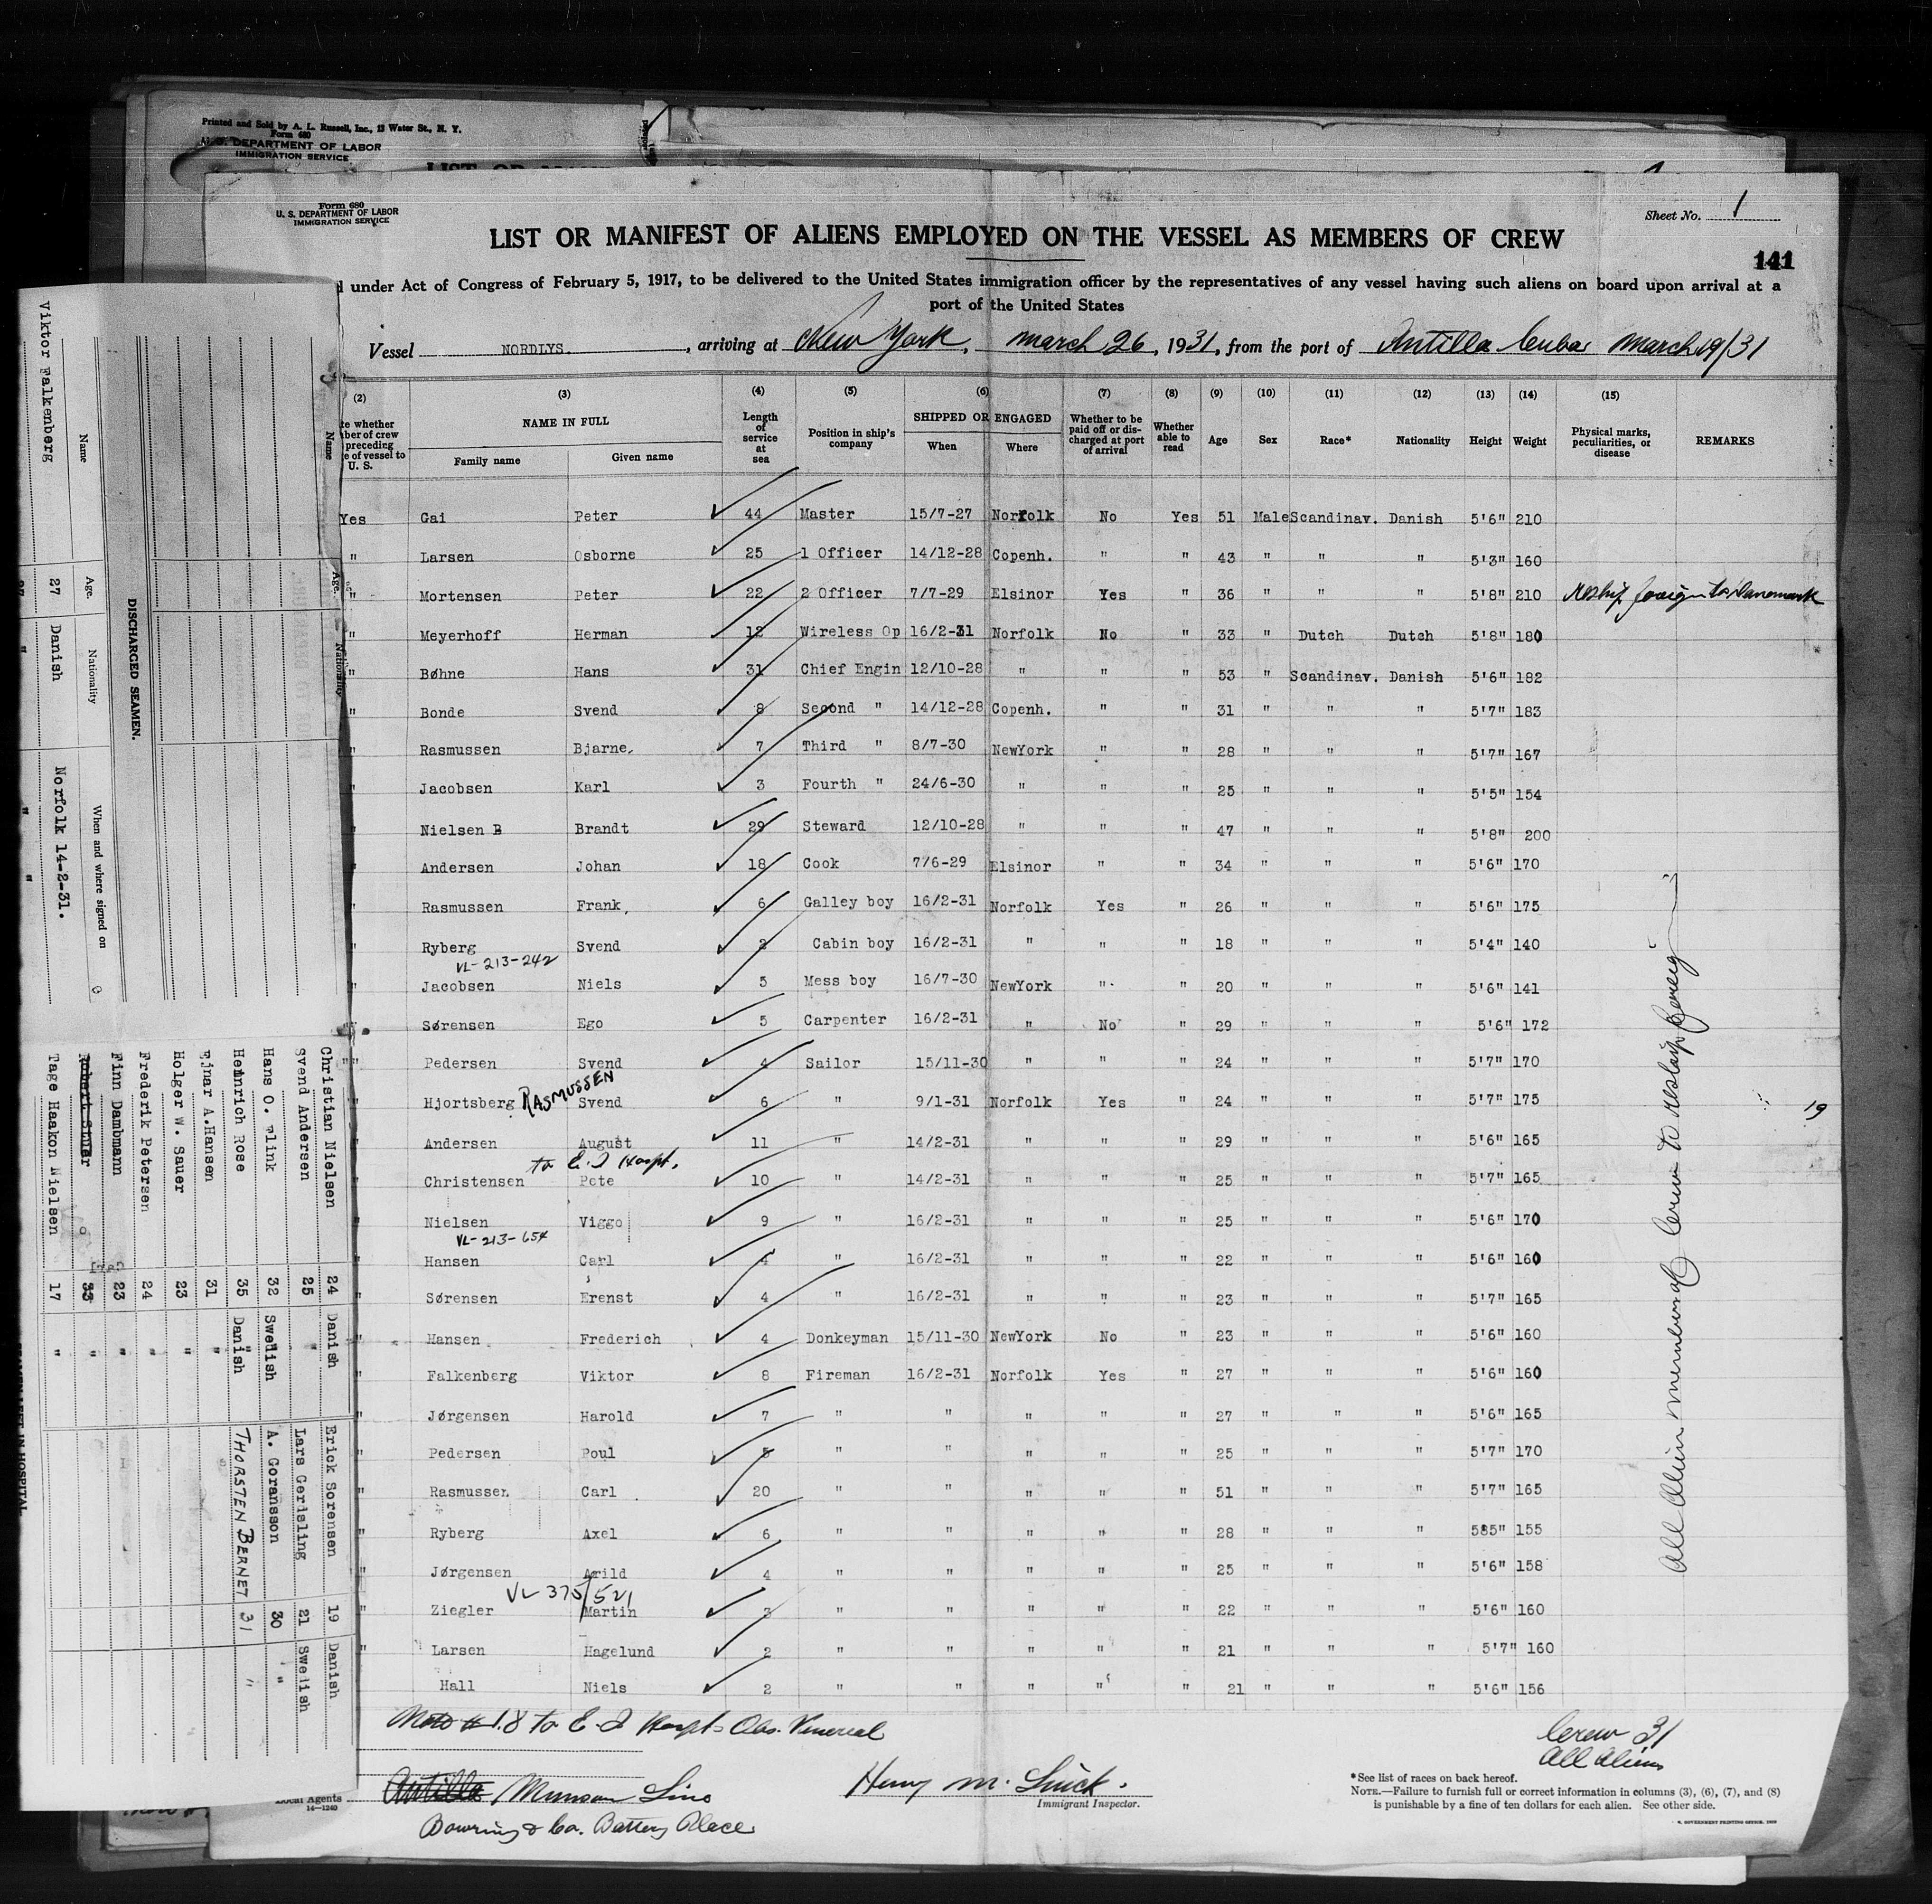 Printed and Sold by A. L. Russell, Inc., 13 Water St., N. Y.
Form 680
U. S. DEPARTMENT OF LABOR
IMMIGRATION SERVICE
Form 680
U. S. DEPARTMENT OF LABOR
IMMIGRATION SERVICE
Sheet No. 1
LIST OR MANIFEST OF ALIENS EMPLOYED ON THE VESSEL AS MEMBERS OF CREW
141
under Act of Congress of February 5, 1917, to be delivered to the United States immigration officer by the representatives of any vessel having such aliens on board upon arrival at a
port of the United States
Vessel NORDLYS. , arriving at New York, March 26, 1931, from the port of Antilla Cuba March 19/31
(2) (3) (4) (5) (6) (7) (8) (9) (10) (11) (12) (13) (14) (15)
whether member of crew preceding of vessel to U. S. NAME IN FULL Family name Given name Length of service at sea Position in ship's company SHIPPED OR ENGAGED When Where Whether to be paid off or discharged at port of arrival Whether able to read Age Sex Race* Nationality Height Weight Physical marks, peculiarities, or disease REMARKS
Yes Gai Peter 44 Master 15/7-27 Norfolk No Yes 51 Male Scandinav. Danish 5'6" 210
" Larsen Osborne 25 1 Officer 14/12-28 Copenh. " " 43 " " " 5'3" 160
" Mortensen Peter 22 2 Officer 7/7-29 Elsinor Yes " 36 " " " 5'8" 210 Reship foreign to Danemark
" Meyerhoff Herman 12 Wireless Op 16/2-31 Norfolk No " 33 " Dutch Dutch 5'8" 180
" Bøhne Hans 31 Chief Engin 12/10-28 " " " 53 " Scandinav. Danish 5'6" 182
" Bonde Svend 8 Second " 14/12-28 Copenh. " " 31 " " " 5'7" 183
" Rasmussen Bjarne, 7 Third " 8/7-30 NewYork " " 28 " " " 5'7" 167
" Jacobsen Karl 3 Fourth " 24/6-30 " " " 25 " " " 5'5" 154
" Nielsen B Brandt 29 Steward 12/10-28 " " " 47 " " " 5'8" 200
" Andersen Johan 18 Cook 7/6-29 Elsinor " " 34 " " " 5'6" 170
" Rasmussen Frank, 6 Galley boy 16/2-31 Norfolk Yes " 26 " " " 5'6" 175
" Ryberg Svend 2 Cabin boy 16/2-31 " " " 18 " " " 5'4" 140
VL-213-242
" Jacobsen Niels 5 Mess boy 16/7-30 NewYork " " 20 " " " 5'6" 141
" Sørensen Ego 5 Carpenter 16/2-31 " No " 29 " " " 5'6" 172
" Pedersen Svend 4 Sailor 15/11-30 " " " 24 " " " 5'7" 170
RASMUSSEN
" Hjortsberg Svend 6 " 9/1-31 Norfolk Yes " 24 " " " 5'7" 175 19
" Andersen August 11 " 14/2-31 " " " 29 " " " 5'6" 165
to E.I Hospt.
" Christensen Pete 10 " 14/2-31 " " " 25 " " " 5'7" 165
" Nielsen Viggo 9 " 16/2-31 " " " 25 " " " 5'6" 170
VL-213-654
" Hansen Carl 4 " 16/2-31 " " " 22 " " " 5'6" 160
" Sørensen Erenst 4 " 16/2-31 " " " 23 " " " 5'7" 165
" Hansen Frederich 4 Donkeyman 15/11-30 NewYork No " 23 " " " 5'6" 160
" Falkenberg Viktor 8 Fireman 16/2-31 Norfolk Yes " 27 " " " 5'6" 160
" Jørgensen Harold 7 " " " " " 27 " " " 5'6" 165
" Pedersen Poul 5 " " " " " 25 " " " 5'7" 170
" Rasmussen Carl 20 " " " " " 51 " " " 5'7" 165
" Ryberg Axel 6 " " " " " 28 " " " 585" 155
" Jørgensen Arild 4 " " " " " 25 " " " 5'6" 158
VL 375/521
" Ziegler Martin 3 " " " " " 22 " " " 5'6" 160
" Larsen Hagelund 2 " " " " " 21 " " " 5'7" 160
" Hall Niels 2 " " " " " 21 " " " 5'6" 156
All Alien members of Crew to reship foreign
Note # 18 to E. I Hospt - Obs. Venereal
Crew 31
All Aliens
Antilla Munson Line
Local Agents
14-1240
Bowring & Co. Battery Place
Henry M.
Immigrant Inspector.
*See list of races on back hereof.
NOTE.—Failure to furnish full or correct information in columns (3), (6), (7), and (8)
is punishable by a fine of ten dollars for each alien. See other side.
U. S. GOVERNMENT PRINTING OFFICE
DISCHARGED SEAMEN.
Name Age. Nationality When and where signed on
Viktor Falkenberg 27 Danish Norfolk 14-2-31.
Name Age. Nationality
Christian Nielsen 24 Danish Erick Sorensen 19 Danish
Svend Andersen 25 " Lars Gerisling 21 Swedish
Hans O. Flink 32 Swedish A. Goransson 30 "
Heinrich Rose 35 Danish THORSTEN BERNET 31 "
Ejnar A. Hansen 31 "
Holger W. Sauer 23 "
Frederik Petersen 24 "
Finn Dambmann 23 "
Robert 33 "
Tage Haakon Nielsen 17 "
IN HOSPITAL